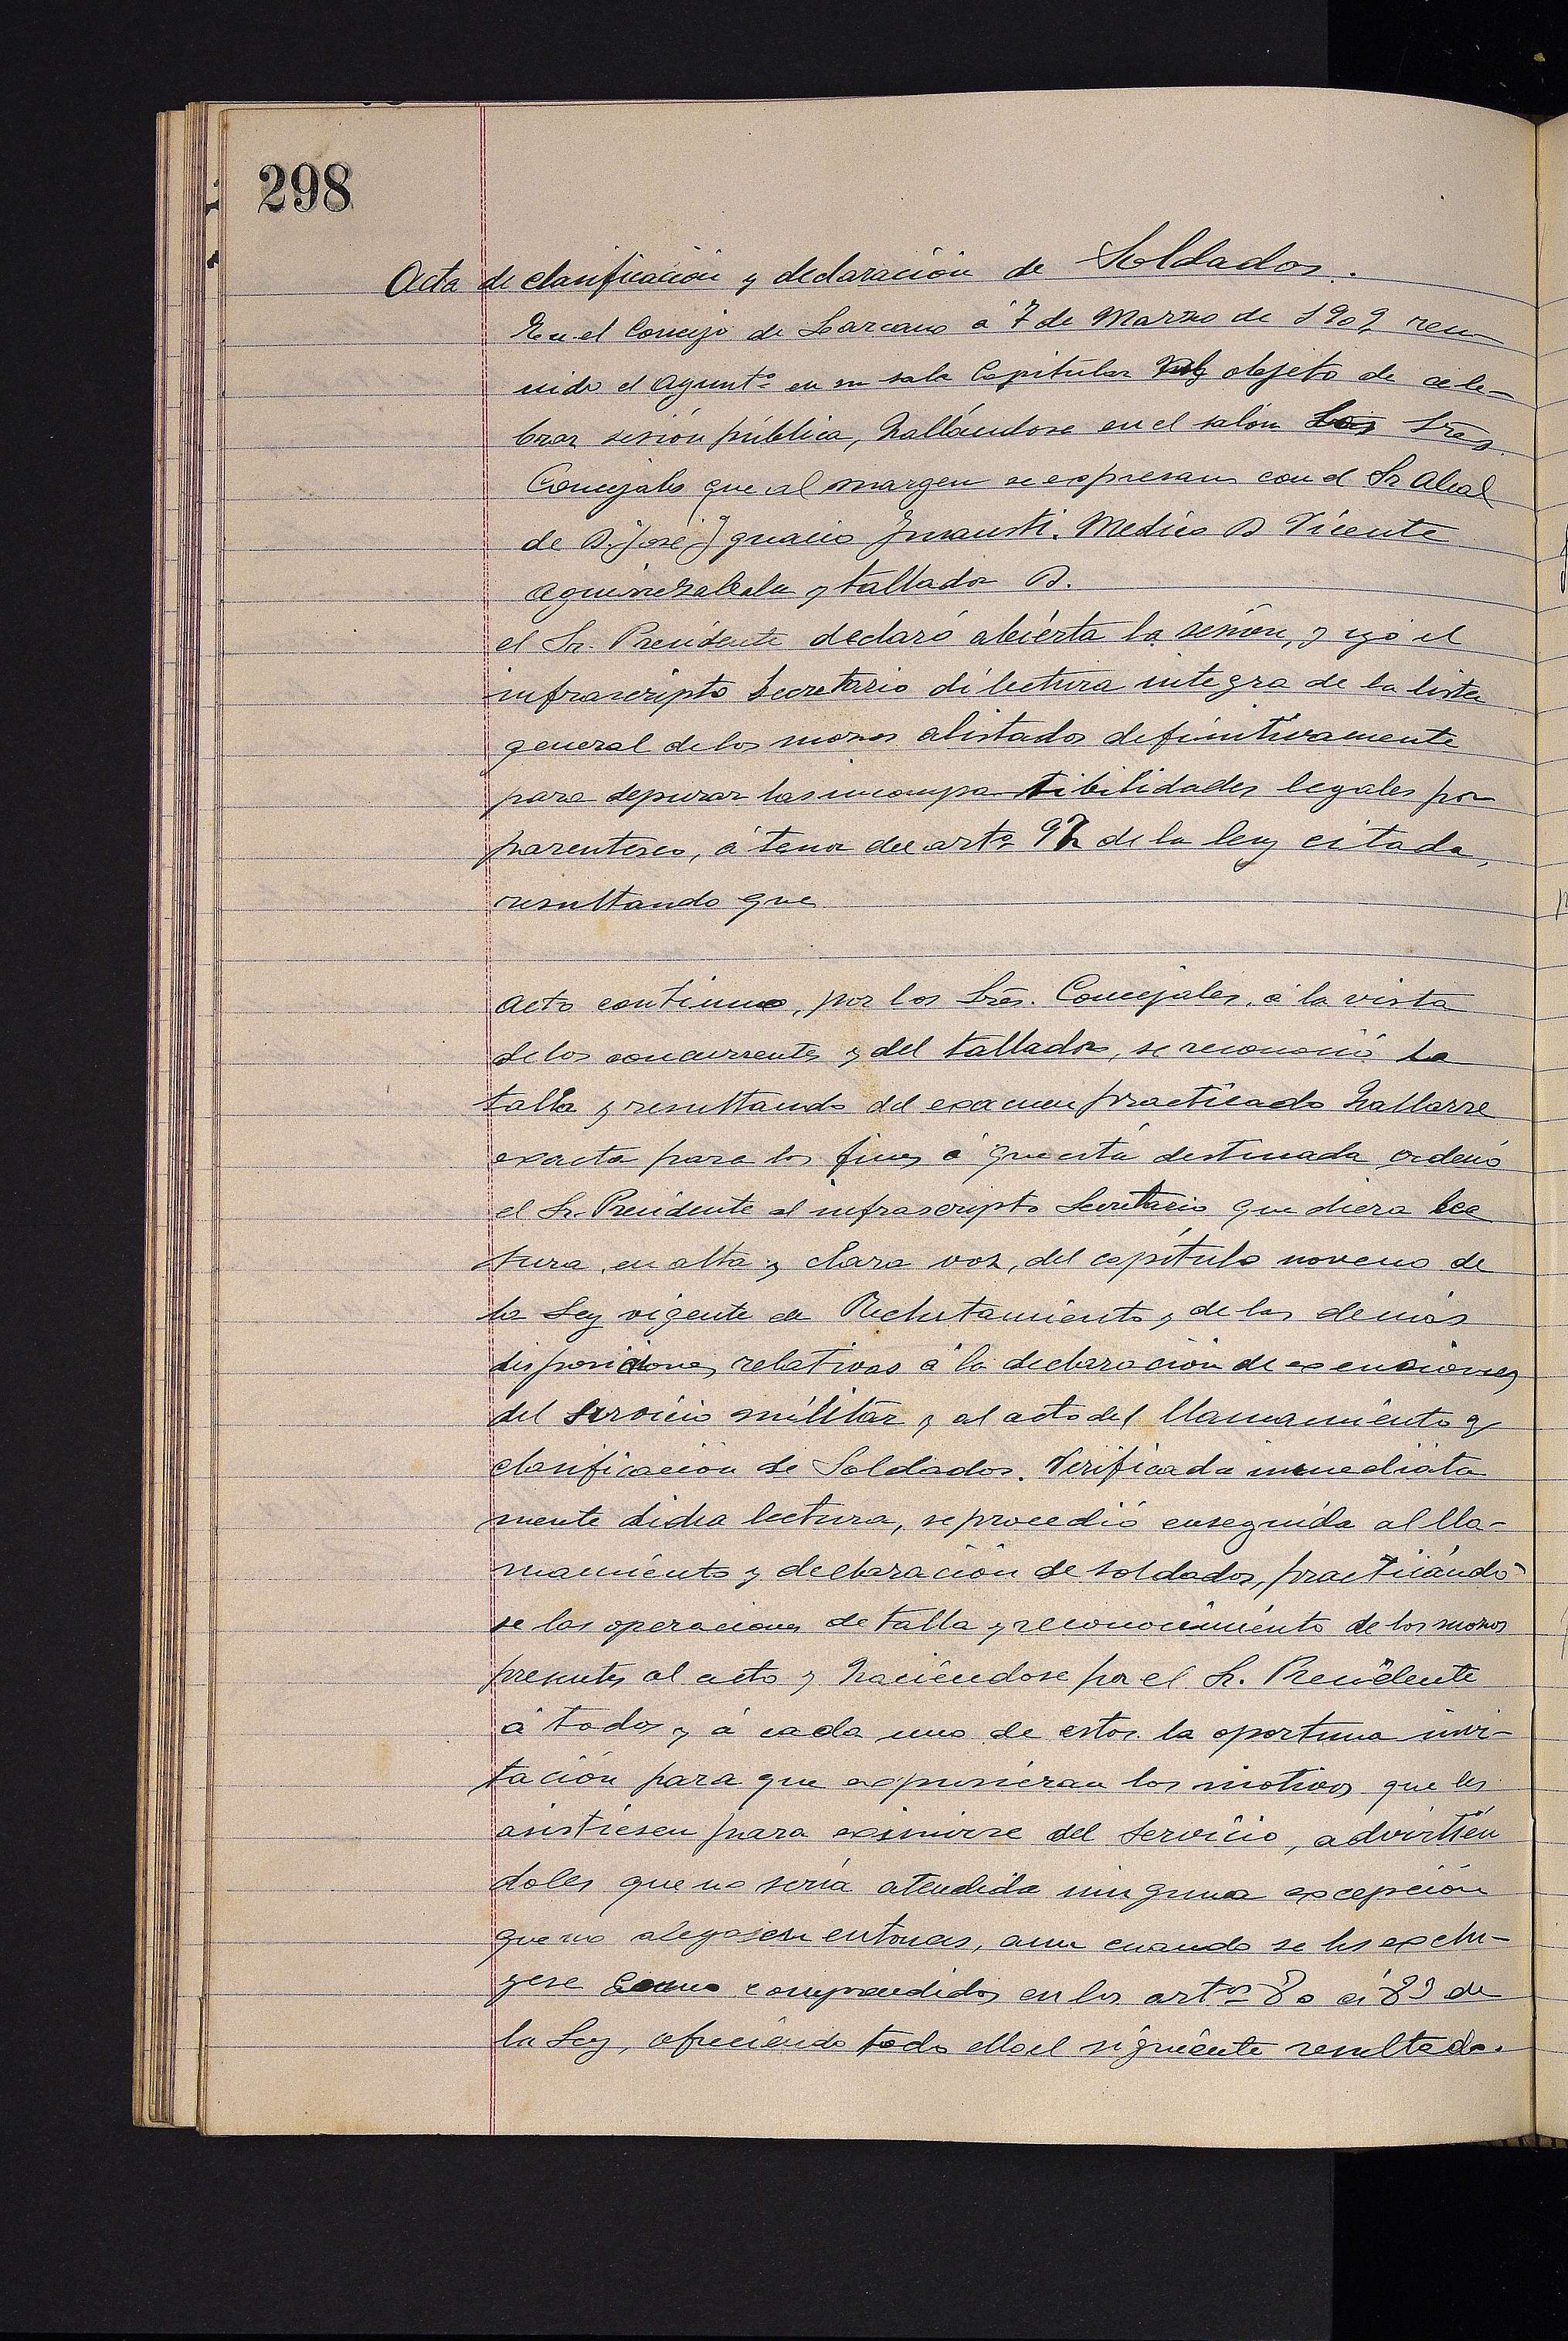 298
Acta de clasificación y declaración de Soldados.
En el Concejo de Lazcano á 7 de Marzo de 1909 reu
nido el Ayuntº en su sala Capitular objeto de cele-
brar sesión pública, hallándose en el salón los Sres.
Concejales que al margen se expresan con el Sr Alcal
de D. José Ignacio Imausti. Medico D Vicente
Aguinrezabala y tallador D.
el Sr. Presidente declaró abierta la sesión, y yo el
infrascripto Secretario di lectura integra de la lista
general de los mozos alistados definitivamente
para depurar las incompatibilidades legales por
parentesco, á tenor del artº 97 de la ley citada,
resultando que
Acto continuo, por los Sres. Concejales, á la vista
de los concurrentes y del tallador, se reconoció la
talla y resultando del examen practicado hallarse
exacta para los fines á que está destinada ordenó
el Sr. Presidente al infrascripto Secretario que diera lec
tura, en alta y clara voz, del capítulo noveno de
la Ley vigente de Reclutamiento y de las demás
disposiciones relativas á la declaración de exenciones
del servicio militar y al acto del llamamiento y
clasificación de Soldados. Verificada inmediata
mente dicha lectura, se procedió enseguida al lla-
mamiento y declaración de soldados, practicándo-
se las operaciones de talla y reconocimiento de los mozos
presentes al acto y haciéndose por el Sr. Presidente
á todos y á cada uno de estos la oportuna invi-
tación para que expusieran los motivos que les
asistiesen para eximirse del servicio, advirtién
doles que no sería atendida ninguna excepción
que no alegasen entonces, aun cuando se les exclu-
yese como comprendidos en los artos 80 á 83 de
la Ley, ofreciendo todo ello el siguiente resultado.